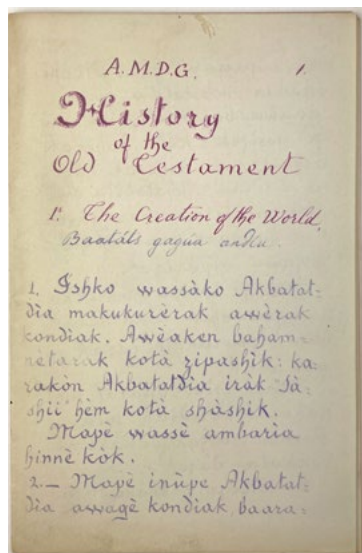 A.M.D.G. 1.
History
of the
Old Testament
1º. The Creation of the World.
Baatáts gagúa andía.
1. Ishko wassàko Akbatat-
dìa makukurèrak awèrak
kondiak. Awèaken baham-
nètarak kotà zipashìk: ka-
rakòn Akbatatdìa iràk Sà-
shii hèm kotà shàshik.
Mapè wassè ambaria
hinnè kòk.
2.— Mapè inùpe Akbatat-
dìa awagè kondiak, baara-